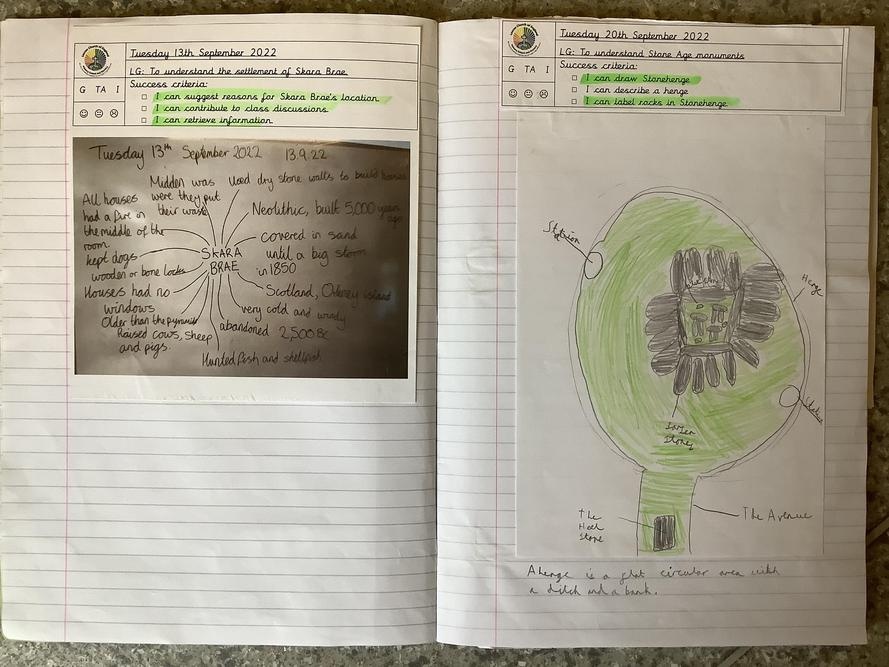 Tuesday 13th September 2022
LG: To understand the settlement of Skara Brae
G TA I
Success criteria:
I can suggest reasons for Skara Brae's location
I can contribute to class discussions
I can retrieve information
Tuesday 13th September 2022 13.9.22
Midden was
were they put
their waste
Used dry stone walls to build houses
All houses
had a fire in
the middle of the
room.
Neolithic, built 5,000 years
ago
covered in sand
until a big storm
in 1850
SKARA
BRAE
kept dogs
wooden or bone locks
Houses had no
windows
Scotland, Orkney island
very cold and windy
Older than the pyramids
Raised cows, sheep
and pigs.
abandoned 2,500 BC
Hunted fish and shellfish
Tuesday 20th September 2022
LG: To understand Stone Age monuments
G TA I
Success criteria:
I can draw Stonehenge
I can describe a henge
I can label rocks in Stonehenge
Station
Henge
Sarsen
Stones
The
Heel
Stone
The Avenue
A henge is a flat circular area with
a ditch and a bank.